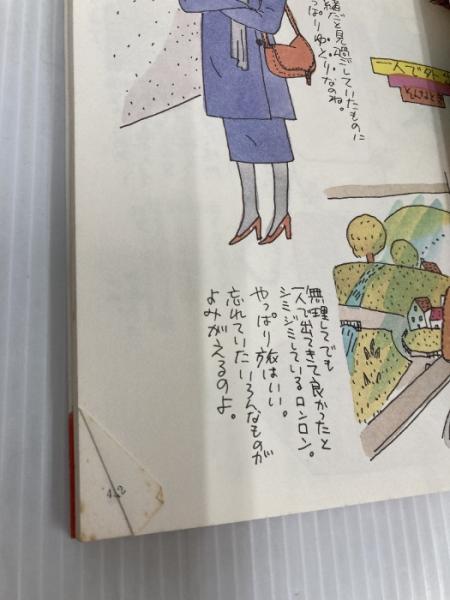 一人で外
緒だと見過ごしていたものに
っぱりゆとりなのね。
無理してでも
一人で出てきて良かったと
シミジミしているロンロン。
やっぱり旅はいい。
忘れていたいろんなものが
よみがえるのよ。